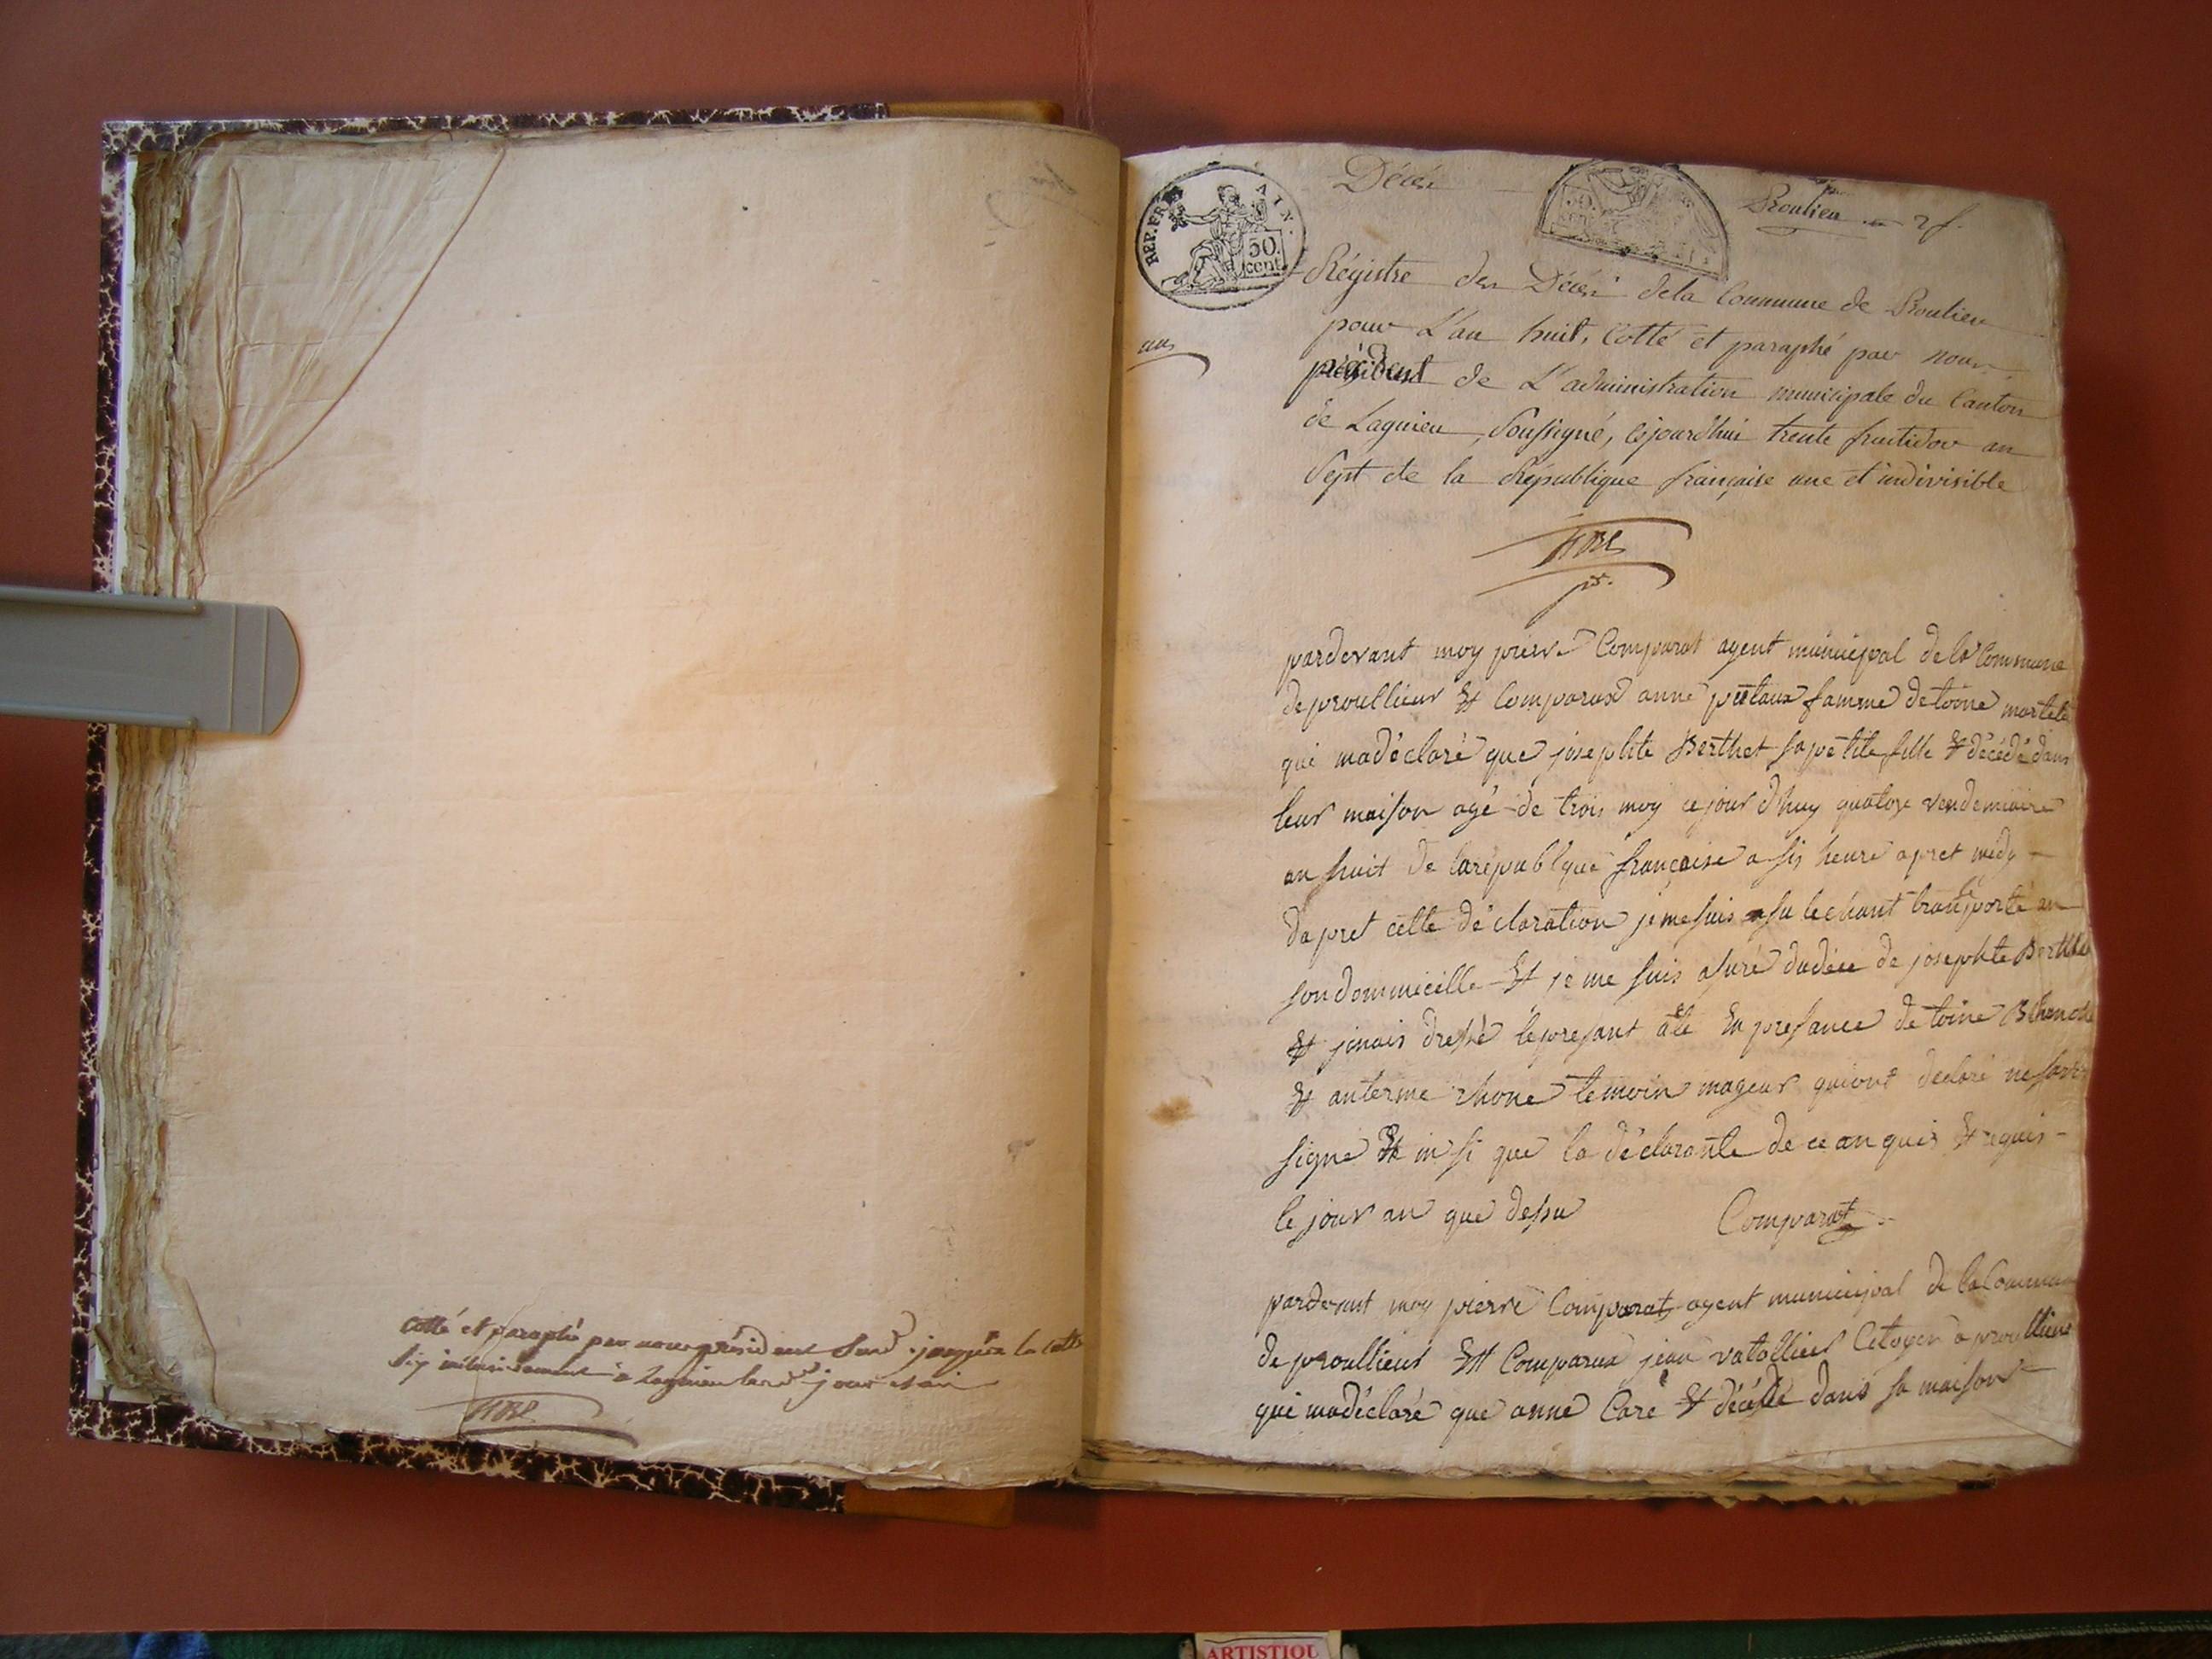 cotté et paraphé par nous président sus.d jusqu'à la cotte
six inclusivement à Lagnieu les d. jour et an
REP. FRA.
AIN.
50.
cent
Décès
50.
Proulieu 2 f.
un
Régistre des Décès de la Commune de Proulieu
pour L'an huit, Cotté et paraphé par nous
président de L'administration municipale du Canton
de Lagnieu, Soussigné, cejourd'hui trente fructidor an
Sept de la République française une et indivisible
pardevant moy pierre Comparat agent municipal de la Commune
de proullieur Et Comparux anne famme de toine
qui madéclaré que josephte Berthet sa petite fille Et décédé dans
leur maison agé de trois moy ce jour dhuy quatoze vendemiaire
an huit de larépublque française a sis heure apret midy
dapret cette déclaration je me suis sule chant transporté au
son dommicille Et je me suis asuré dudéce de josephte
Et jenais dressé le presant ate En presance de toine
Et anterme rhone temoin mageur quiont declaré ne
signé Et in si que la déclarante de ce anquis Et requis
le jour an que dessu Comparat
pardevant moy pierre Comparat agent municipal de la Commune
de proullieur Et Comparua jean vatollier Citoyen a proullieur
qui madéclaré que anne Care Et décédé dans sa maison
ARTISTIQU